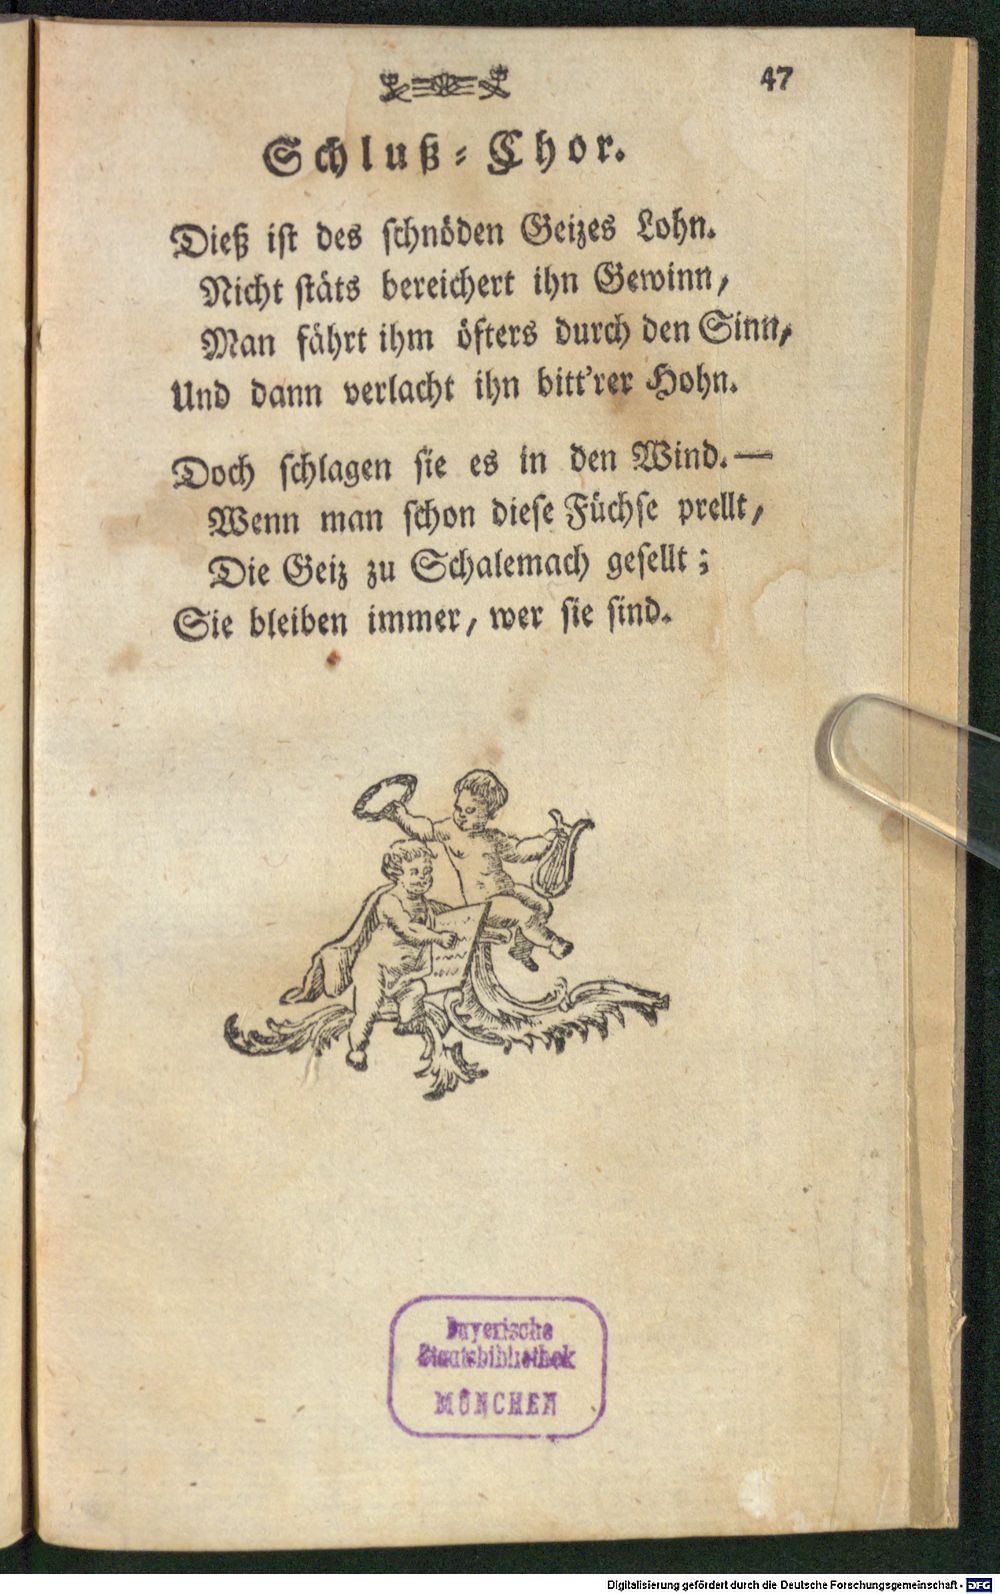 47
Schluß-Chor.
Dieß ist des schnöden Geizes Lohn.
Nicht stäts bereichert ihn Gewinn,
Man fährt ihm öfters durch den Sinn,
Und dann verlacht ihn bitt'rer Hohn.
Doch schlagen sie es in den Wind.—
Wenn man schon diese Füchse prellt,
Die Geiz zu Schalemach gesellt;
Sie bleiben immer, wer sie sind.
Bayerische
Staatsbibliothek
MÜNCHEN
Digitalisierung gefördert durch die Deutsche Forschungsgemeinschaft - DFG